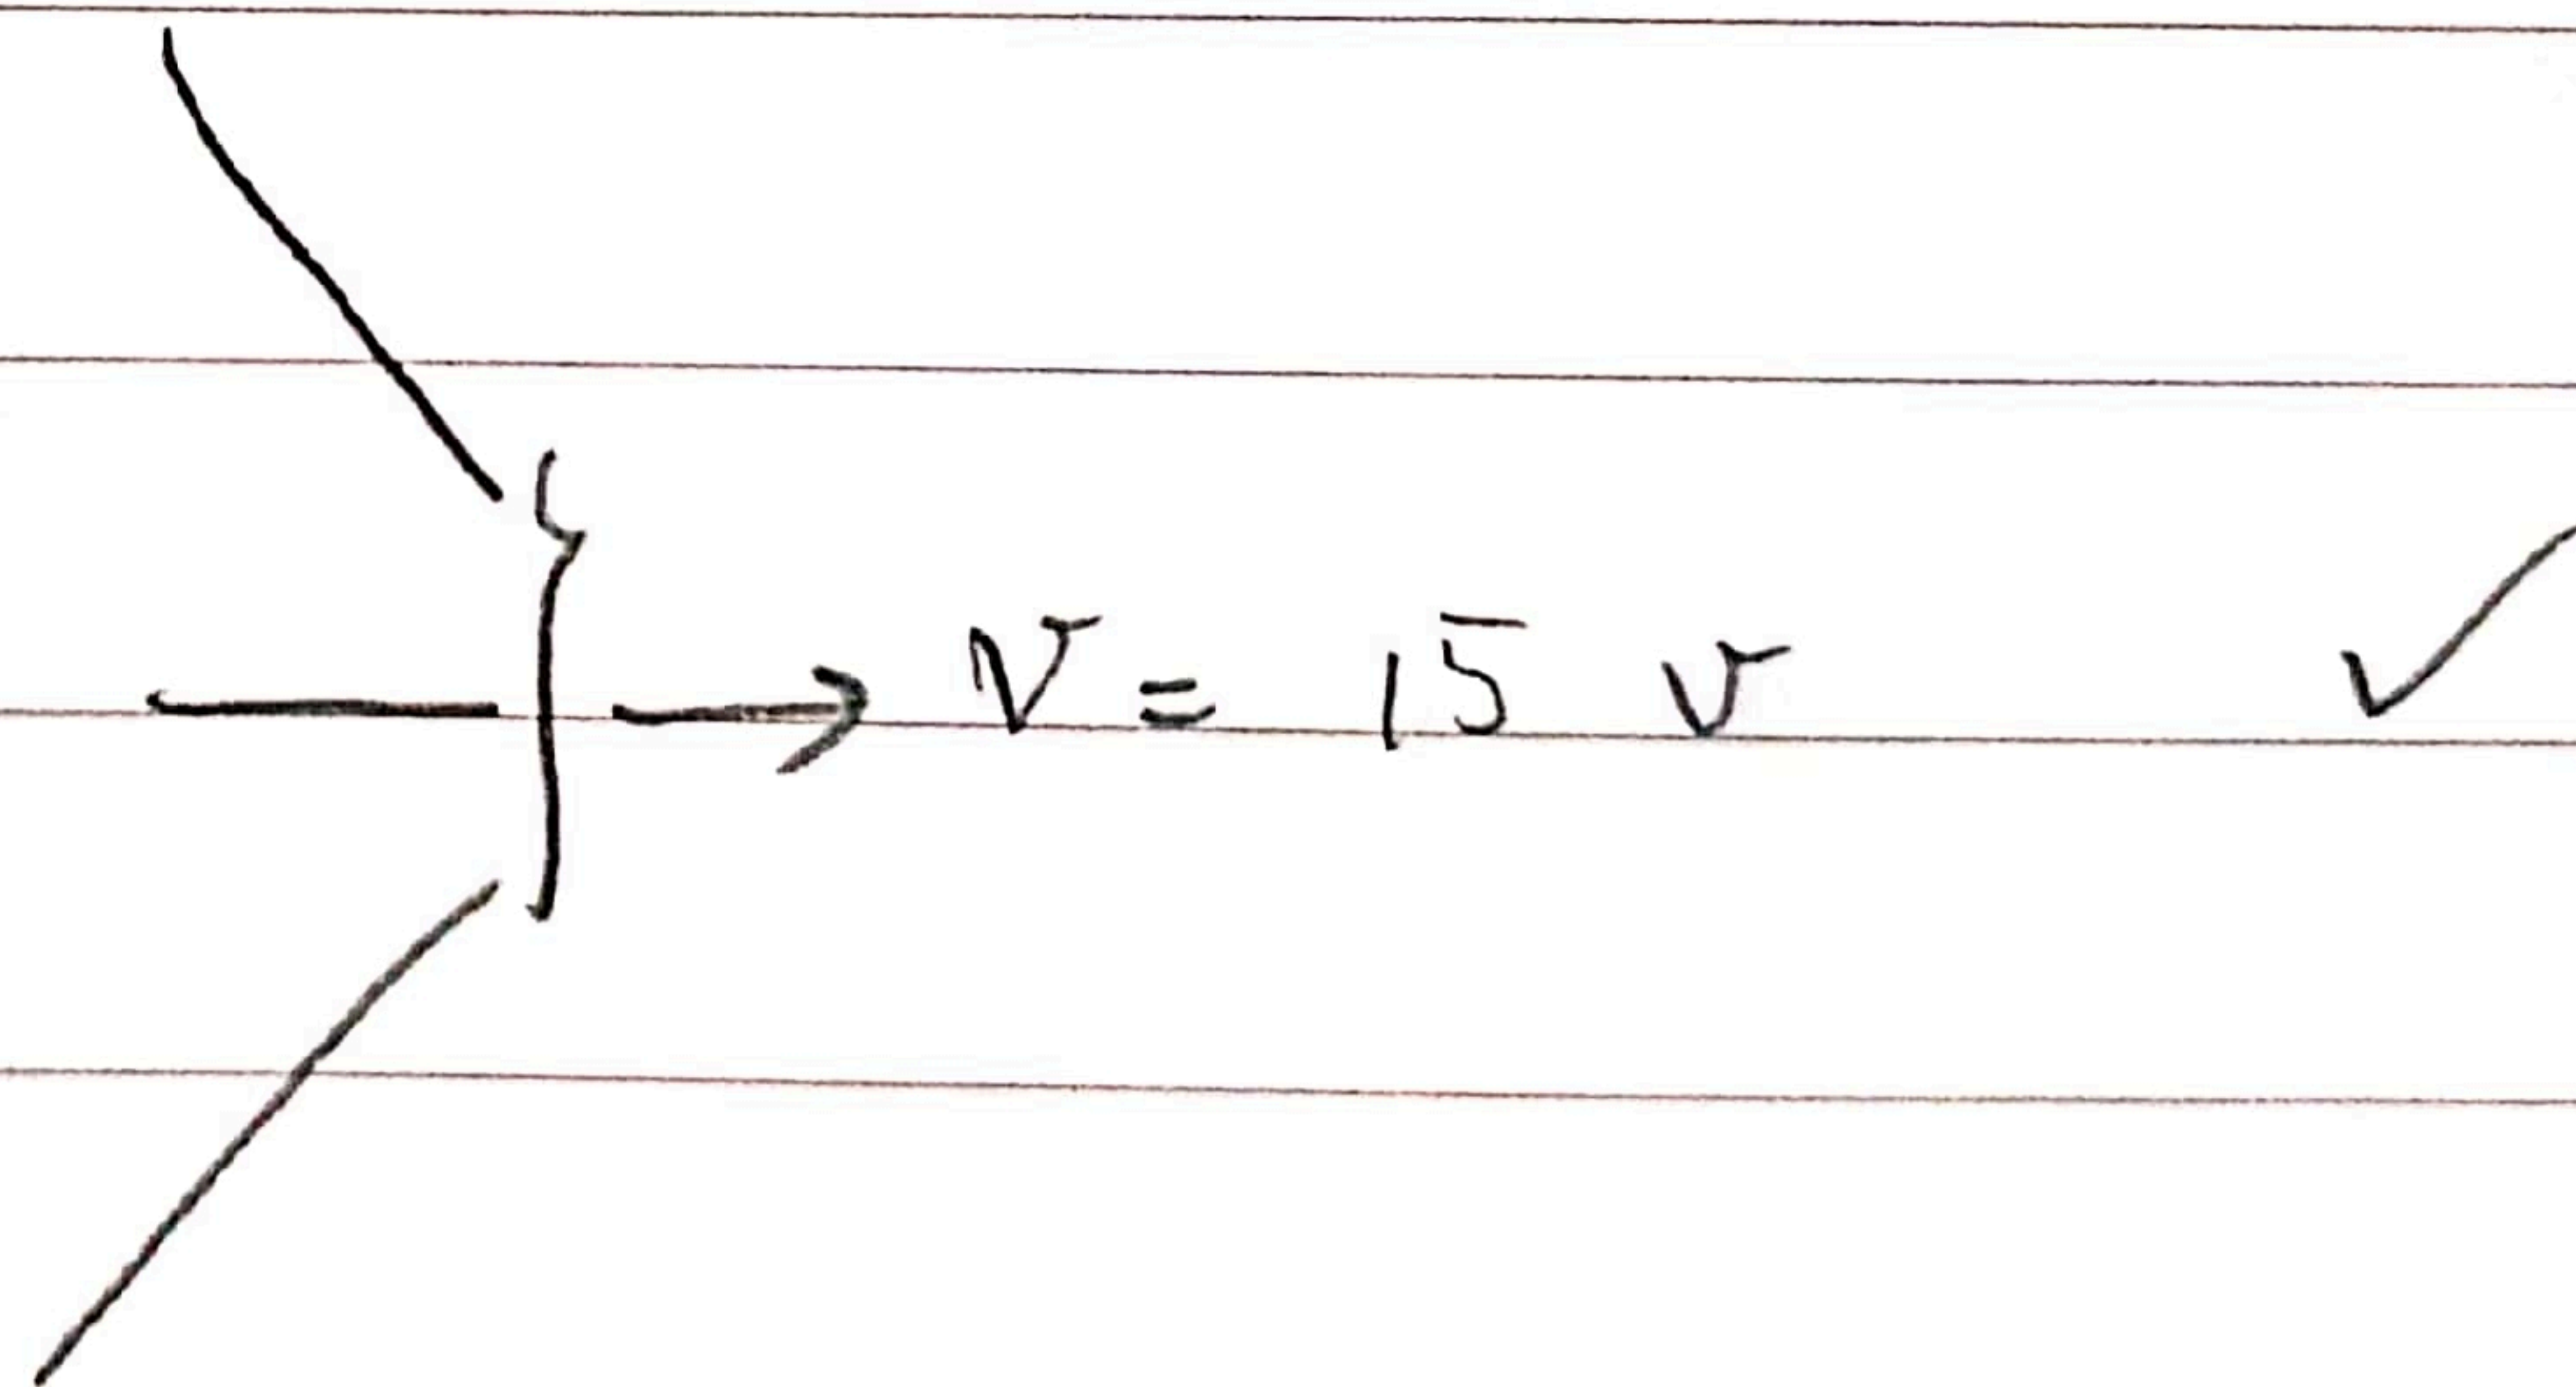 } → V = 15 v ✓